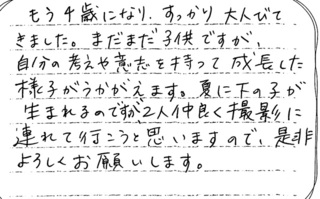 もう4歳になり、すっかり大人びて
きました。まだまだ子供ですが、
自分の考えや意志を持って成長した
様子がうかがえます。夏に下の子が
生まれるのですが、2人仲良く撮影に
連れて行こうと思いますので、是非
よろしくお願いします。